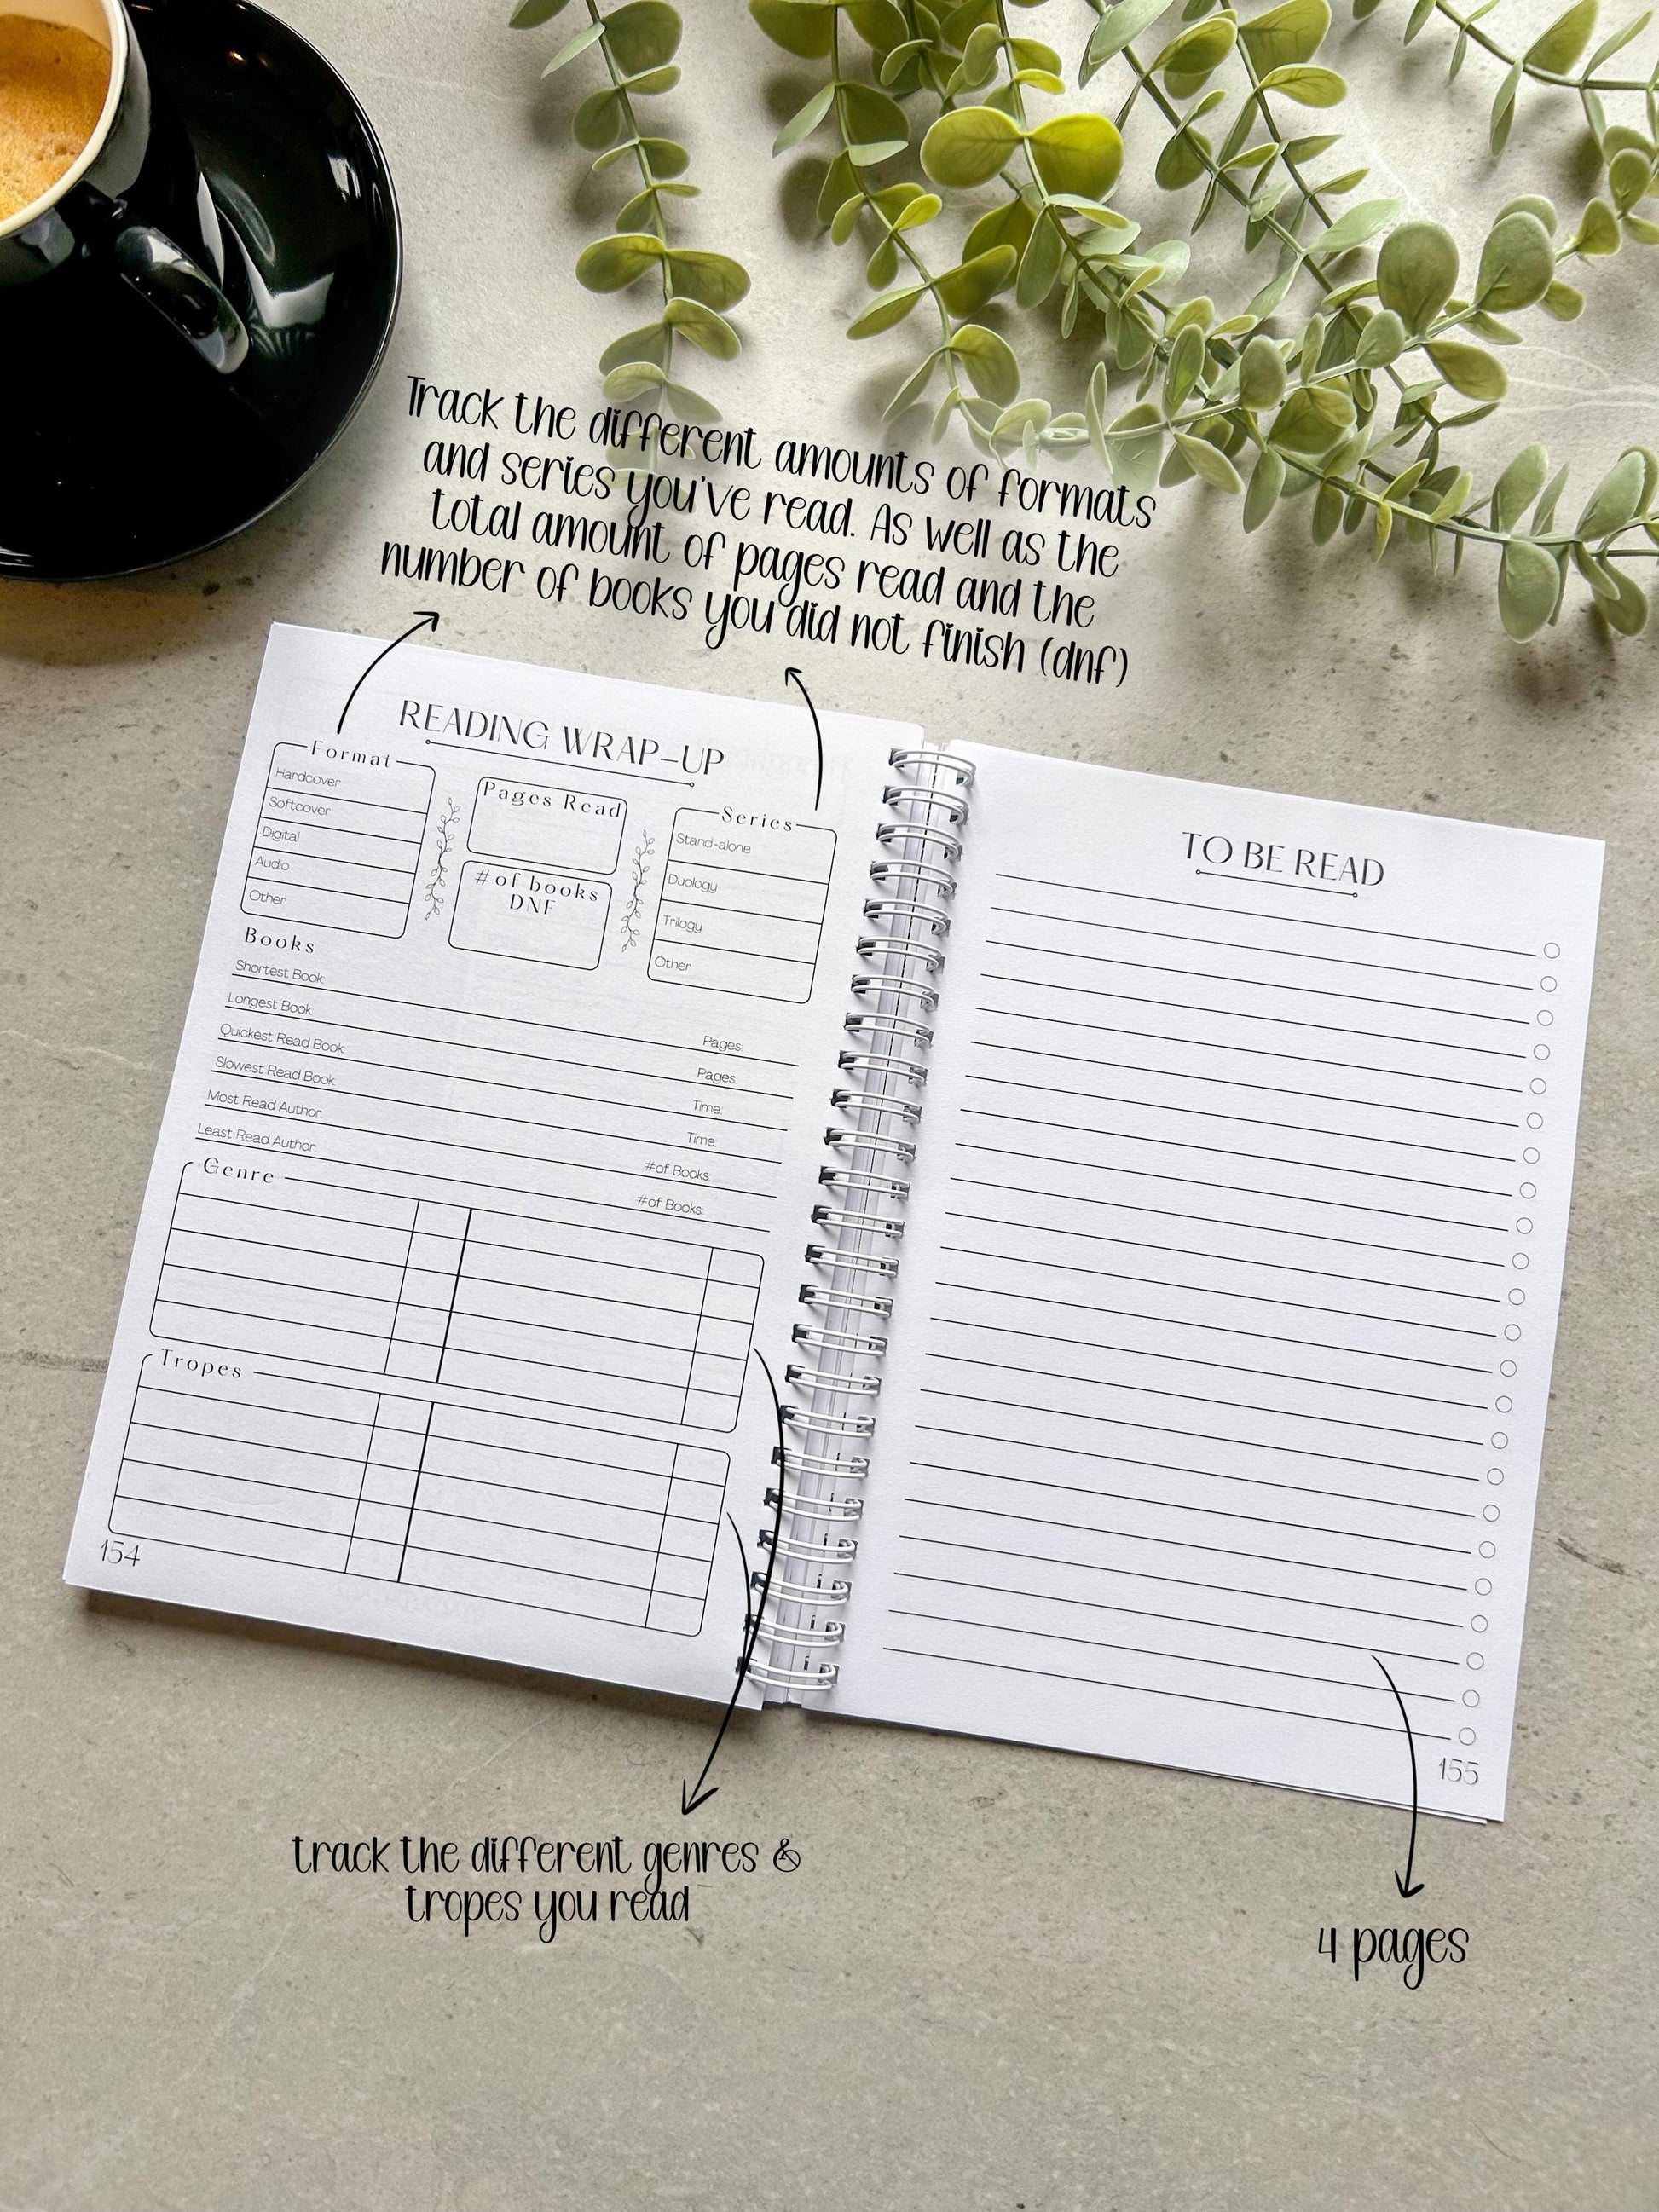 Track the different amounts of formats
and series you've read. As well as the
total amount of pages read and the
number of books you did not finish (dnf)
READING WRAP-UP
Format
Hardcover
Softcover
Digital
Audio
Other
Pages Read
#of books
DNF
Series
Stand-alone
Duology
Trilogy
Other
Books
Shortest Book: Pages:
Longest Book: Pages:
Quickest Read Book: Time:
Slowest Read Book: Time:
Most Read Author: #of Books:
Least Read Author: #of Books:
Genre
Tropes
154
TO BE READ
155
track the different genres &
tropes you read
4 pages